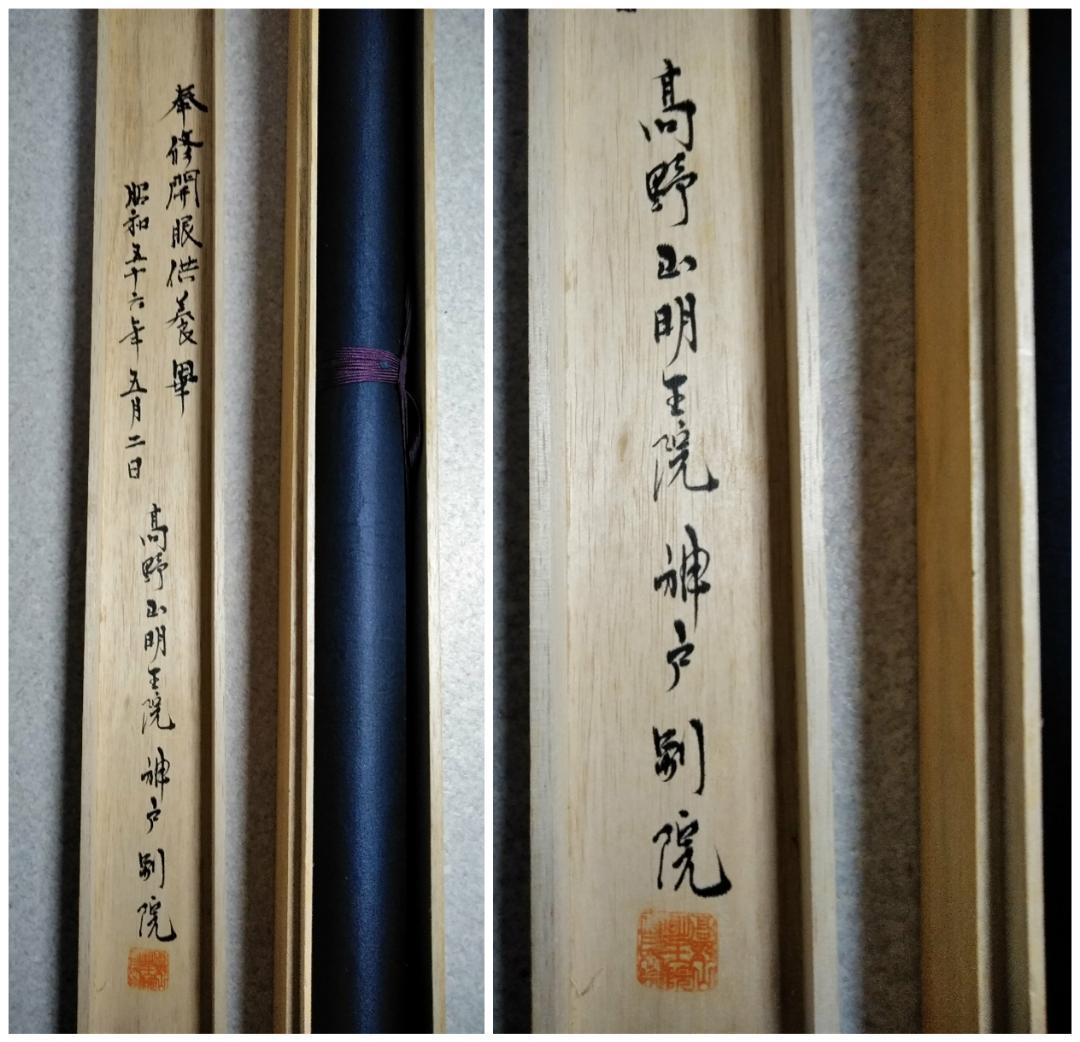 奉修開眼供養畢
昭和五十六年五月二日
高野山明王院 神戸別院
高野山明王院 神戸別院